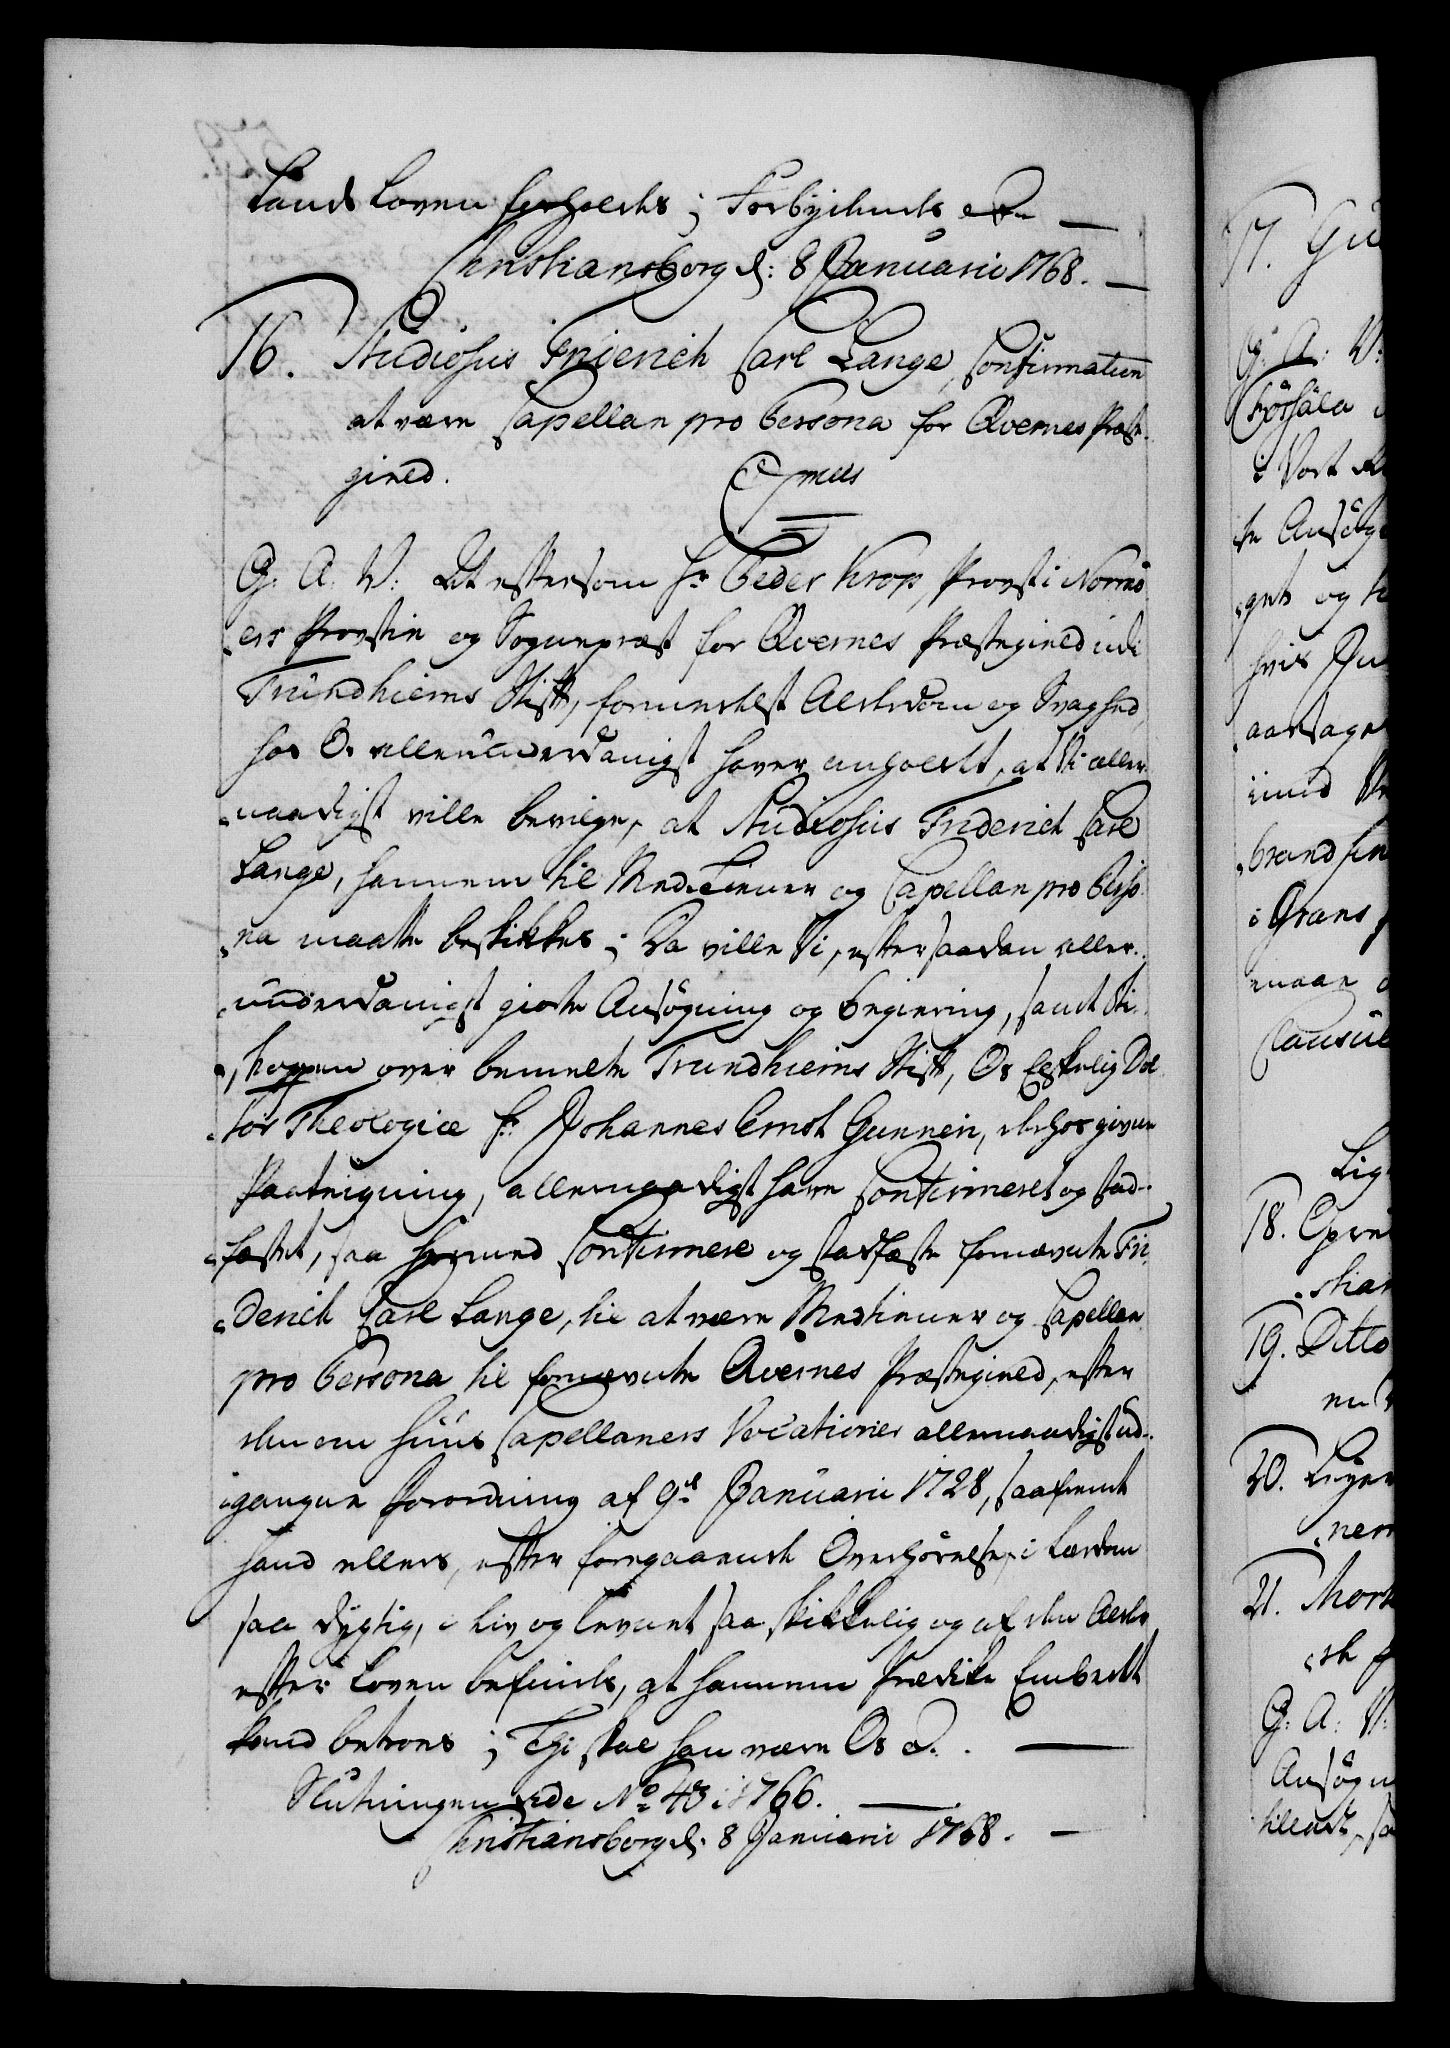 Lands Loven forholdes; Forbydendes etc
Christiansborg d: 8 Januarii 1768.
16. Studiosus Friderich Carl Lange, Confirmation
at være Capellan pro Persona for Qvernes Præste-
gield.
G. A. V: At eftersom Hr Peder Krop, Provst i Normö-
ers Provstie og Sognepræst for Qvernes Præstegield udi
Trundhiems Stift, formedelst Alderdom og Svaghed,
hos Os allerunderdanigst haver anholdt, at Vi aller-
naadigst ville bevilge, at Studiosus Friderich Carl
Lange, hannem til Medtiener og Capellan pro Perso-
na maatte beskikkes; Da ville Vi, efter saadan aller-
underdanigst giorte Ansögning og Begiering, samt Bi-
skoppen over bemelte Trundhiems Stift, Os Elskelig Doc-
tor Theologiæ Hr Johannes Ernst Gunneri, derhos given
Paategning, allernaadigst have Confirmeret og stad-
fæstet, saa og hermed Confirmere og stadfæste fornævnte Fri-
derich Carl Lange, til at være Medtiener og Capellan
pro Persona til fornævnte Qvernes Præstegield, efter
den om Huus Capellaners Vocationer allernaadigst ud-
gangne Forordning af 9de Januarii 1728, saafremt
hand ellers, efter foregaaende Overhörelse, i Lærdom
saa dygtig, i Liv og Levnet saa skikkelig og af den Alder
efter Loven befindes, at hannem Prædike Embedet
kand betroes; Thi skal han være Os etc.
Slutningen vide No 43 i 1766.
Christiansborg d. 8 Januarii 1768.
17.
G: A: V:
i Vort
og
hvis
aarsage
imod
i Grans
Clausul
18.
19. Ditto
20.
21.
G: A: V: